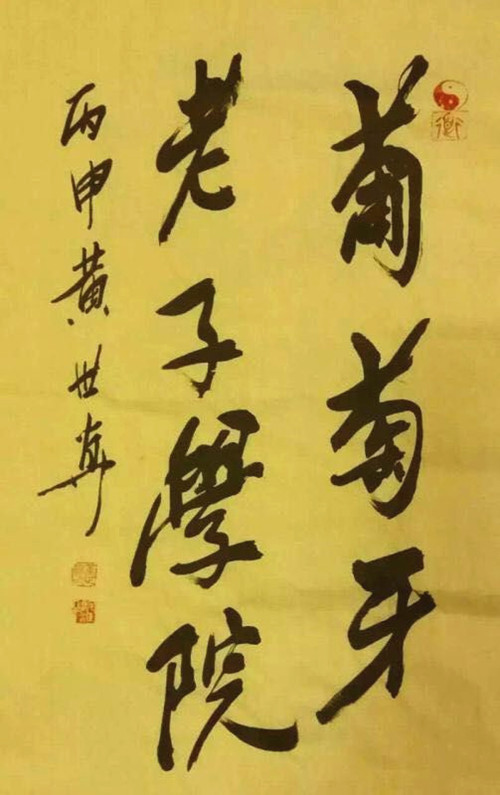 葡萄牙
老子學院
丙申黄世真